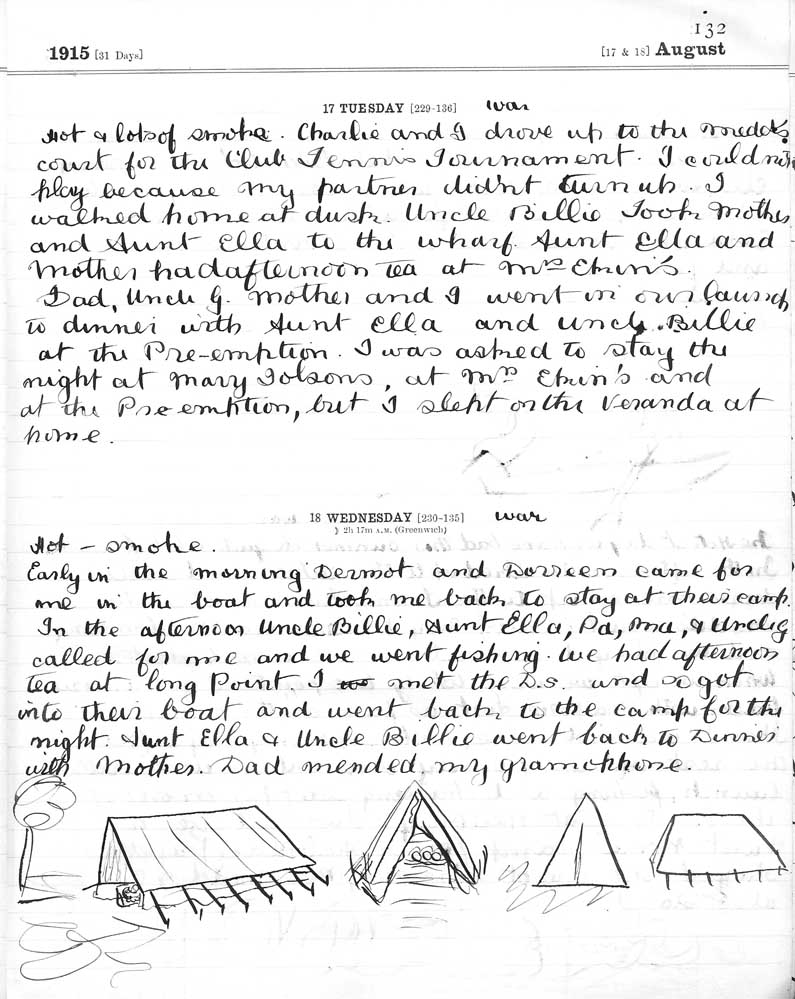 132
1915 [31 Days] [17 & 18] August
17 TUESDAY [229-136] war
Hot & lots of smoke. Charlie and I drove up to the
court for the Club Tennis Tournament. I could not
play because my partner didn't turn up. I
walked home at dusk. Uncle Billie Took Mother
and Aunt Ella to the wharf. Aunt Ella and
Mother had afternoon tea at Mrs Ekin's.
Dad, Uncle G. Mother and I went in our launch
to dinner with Aunt Ella and Uncle Billie
at the Pre-emption. I was asked to stay the
night at Mary Tolsons, at Mrs Ekin's and
at the Pre emption, but I slept on the Veranda at
home.
18 WEDNESDAY [230-135] war
2h 17m A.M. (Greenwich)
Hot – smoke.
Early in the morning Dermot and Dorreen came for
me in the boat and took me back to stay at their camp.
In the afternoon Uncle Billie, Aunt Ella, Pa, Ma, & Uncle G
called for me and we went fishing. We had afternoon
tea at long Point. I met the D.s. and so got
into their boat and went back to the camp for the
night. Aunt Ella & Uncle Billie went back to Dinner
with Mother. Dad mended my gramophone.